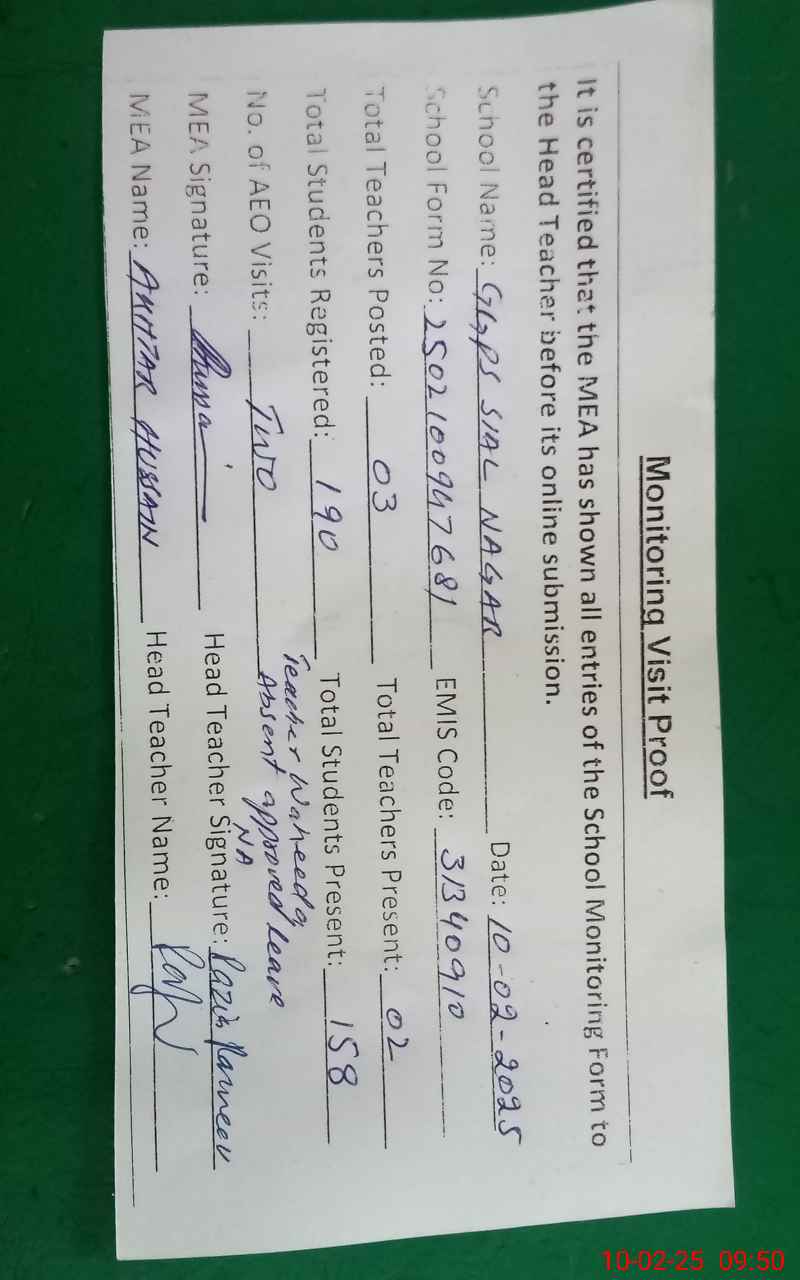 Monitoring Visit Proof
It is certified that the MEA has shown all entries of the School Monitoring Form to
the Head Teacher before its online submission.
School Name: GGPS SIAL NAGAR Date: 10-02-2025
School Form No: 2502100947681 EMIS Code: 31340910
Total Teachers Posted: 03 Total Teachers Present: 02
Total Students Registered: 190 Total Students Present: 158
Teacher Waheeda
No. of AEO Visits: Two Absent approved Leave
NA
MEA Signature: Head Teacher Signature: Razia
MEA Name: AKHTAR HUSSAIN Head Teacher Name:
10-02-25 09:50